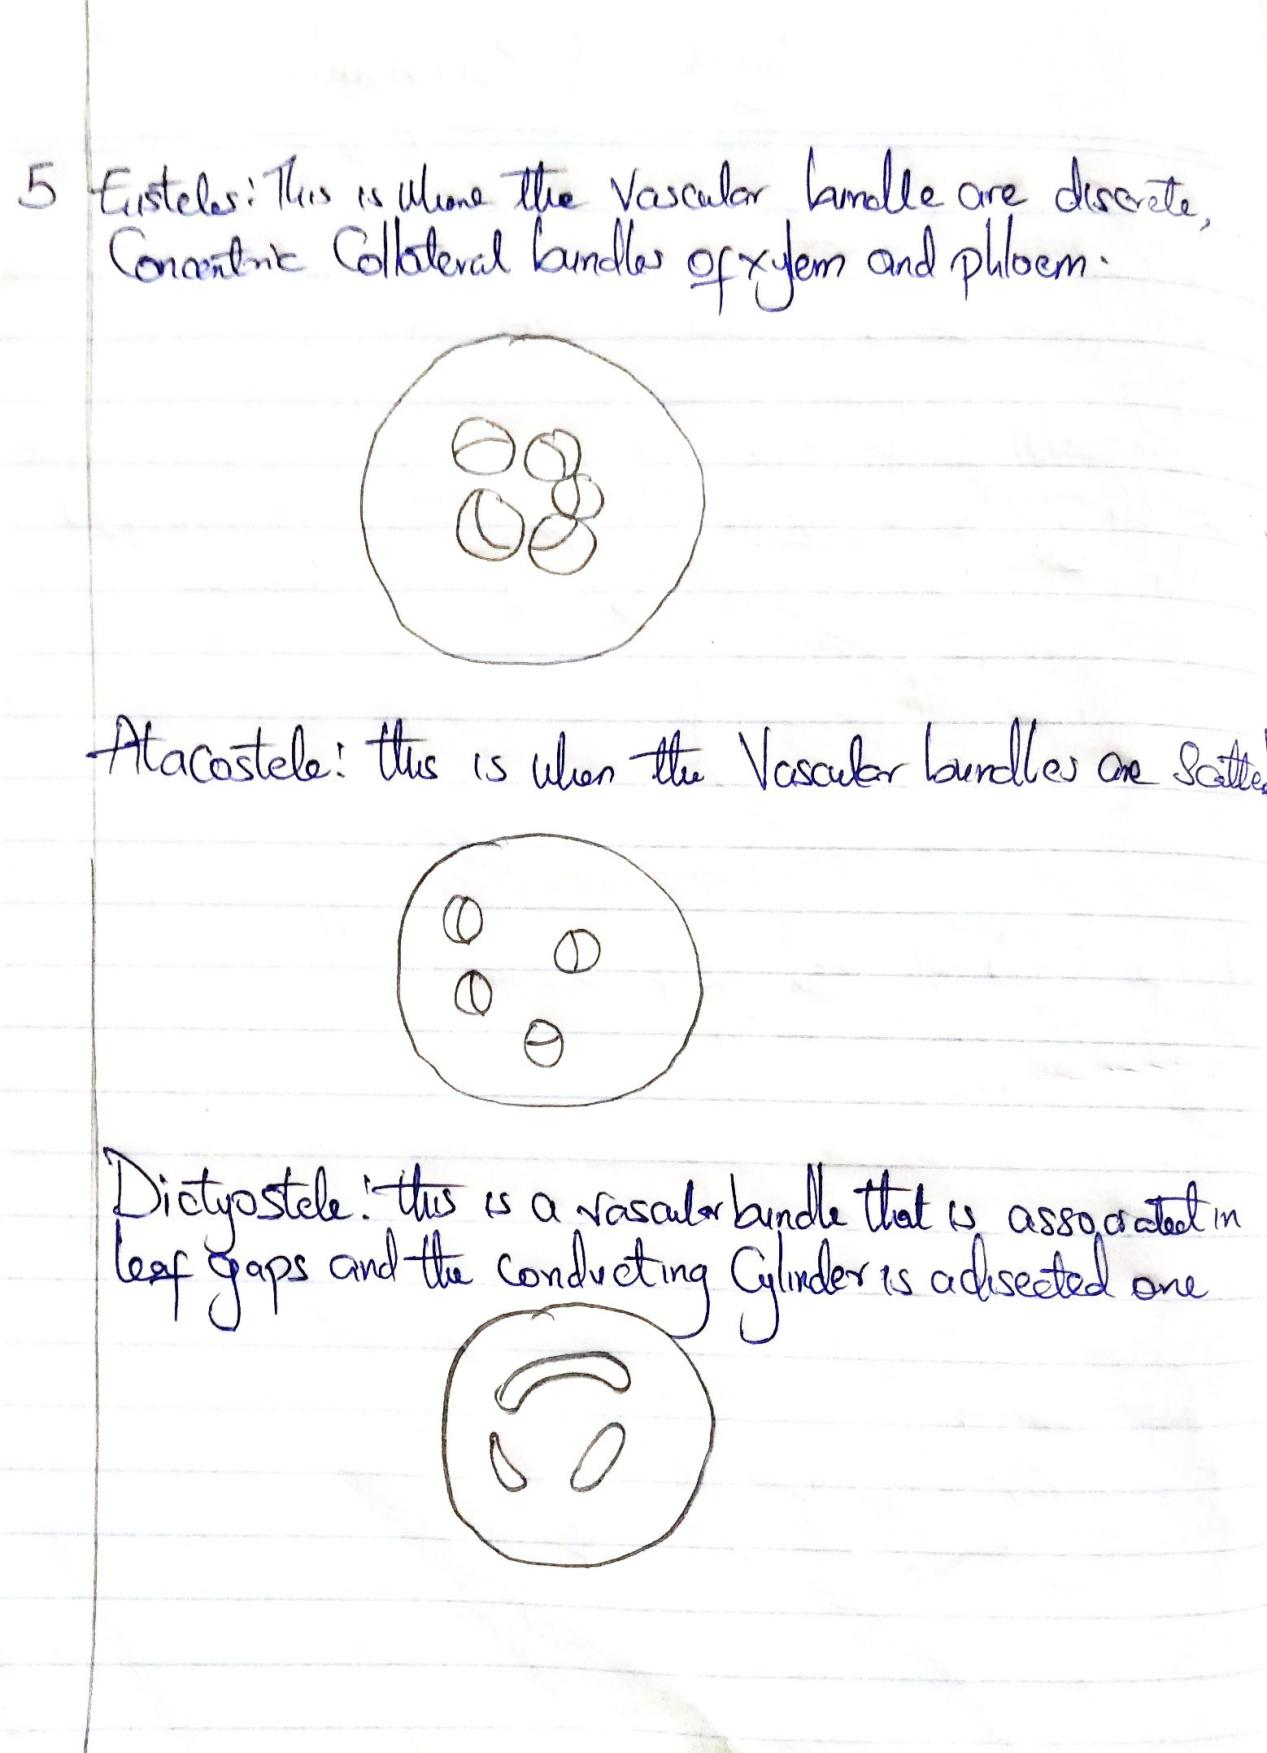 5 Eusteles: This is where the Vascular bundle are discrete,
Concentric Collateral bundles of xylem and phloem.
Atacostele: this is when the Vascular bundles are Scatte
Dictyostele: this is a vascular bundle that is associated in
leaf gaps and the conducting Cylinder is a disected one